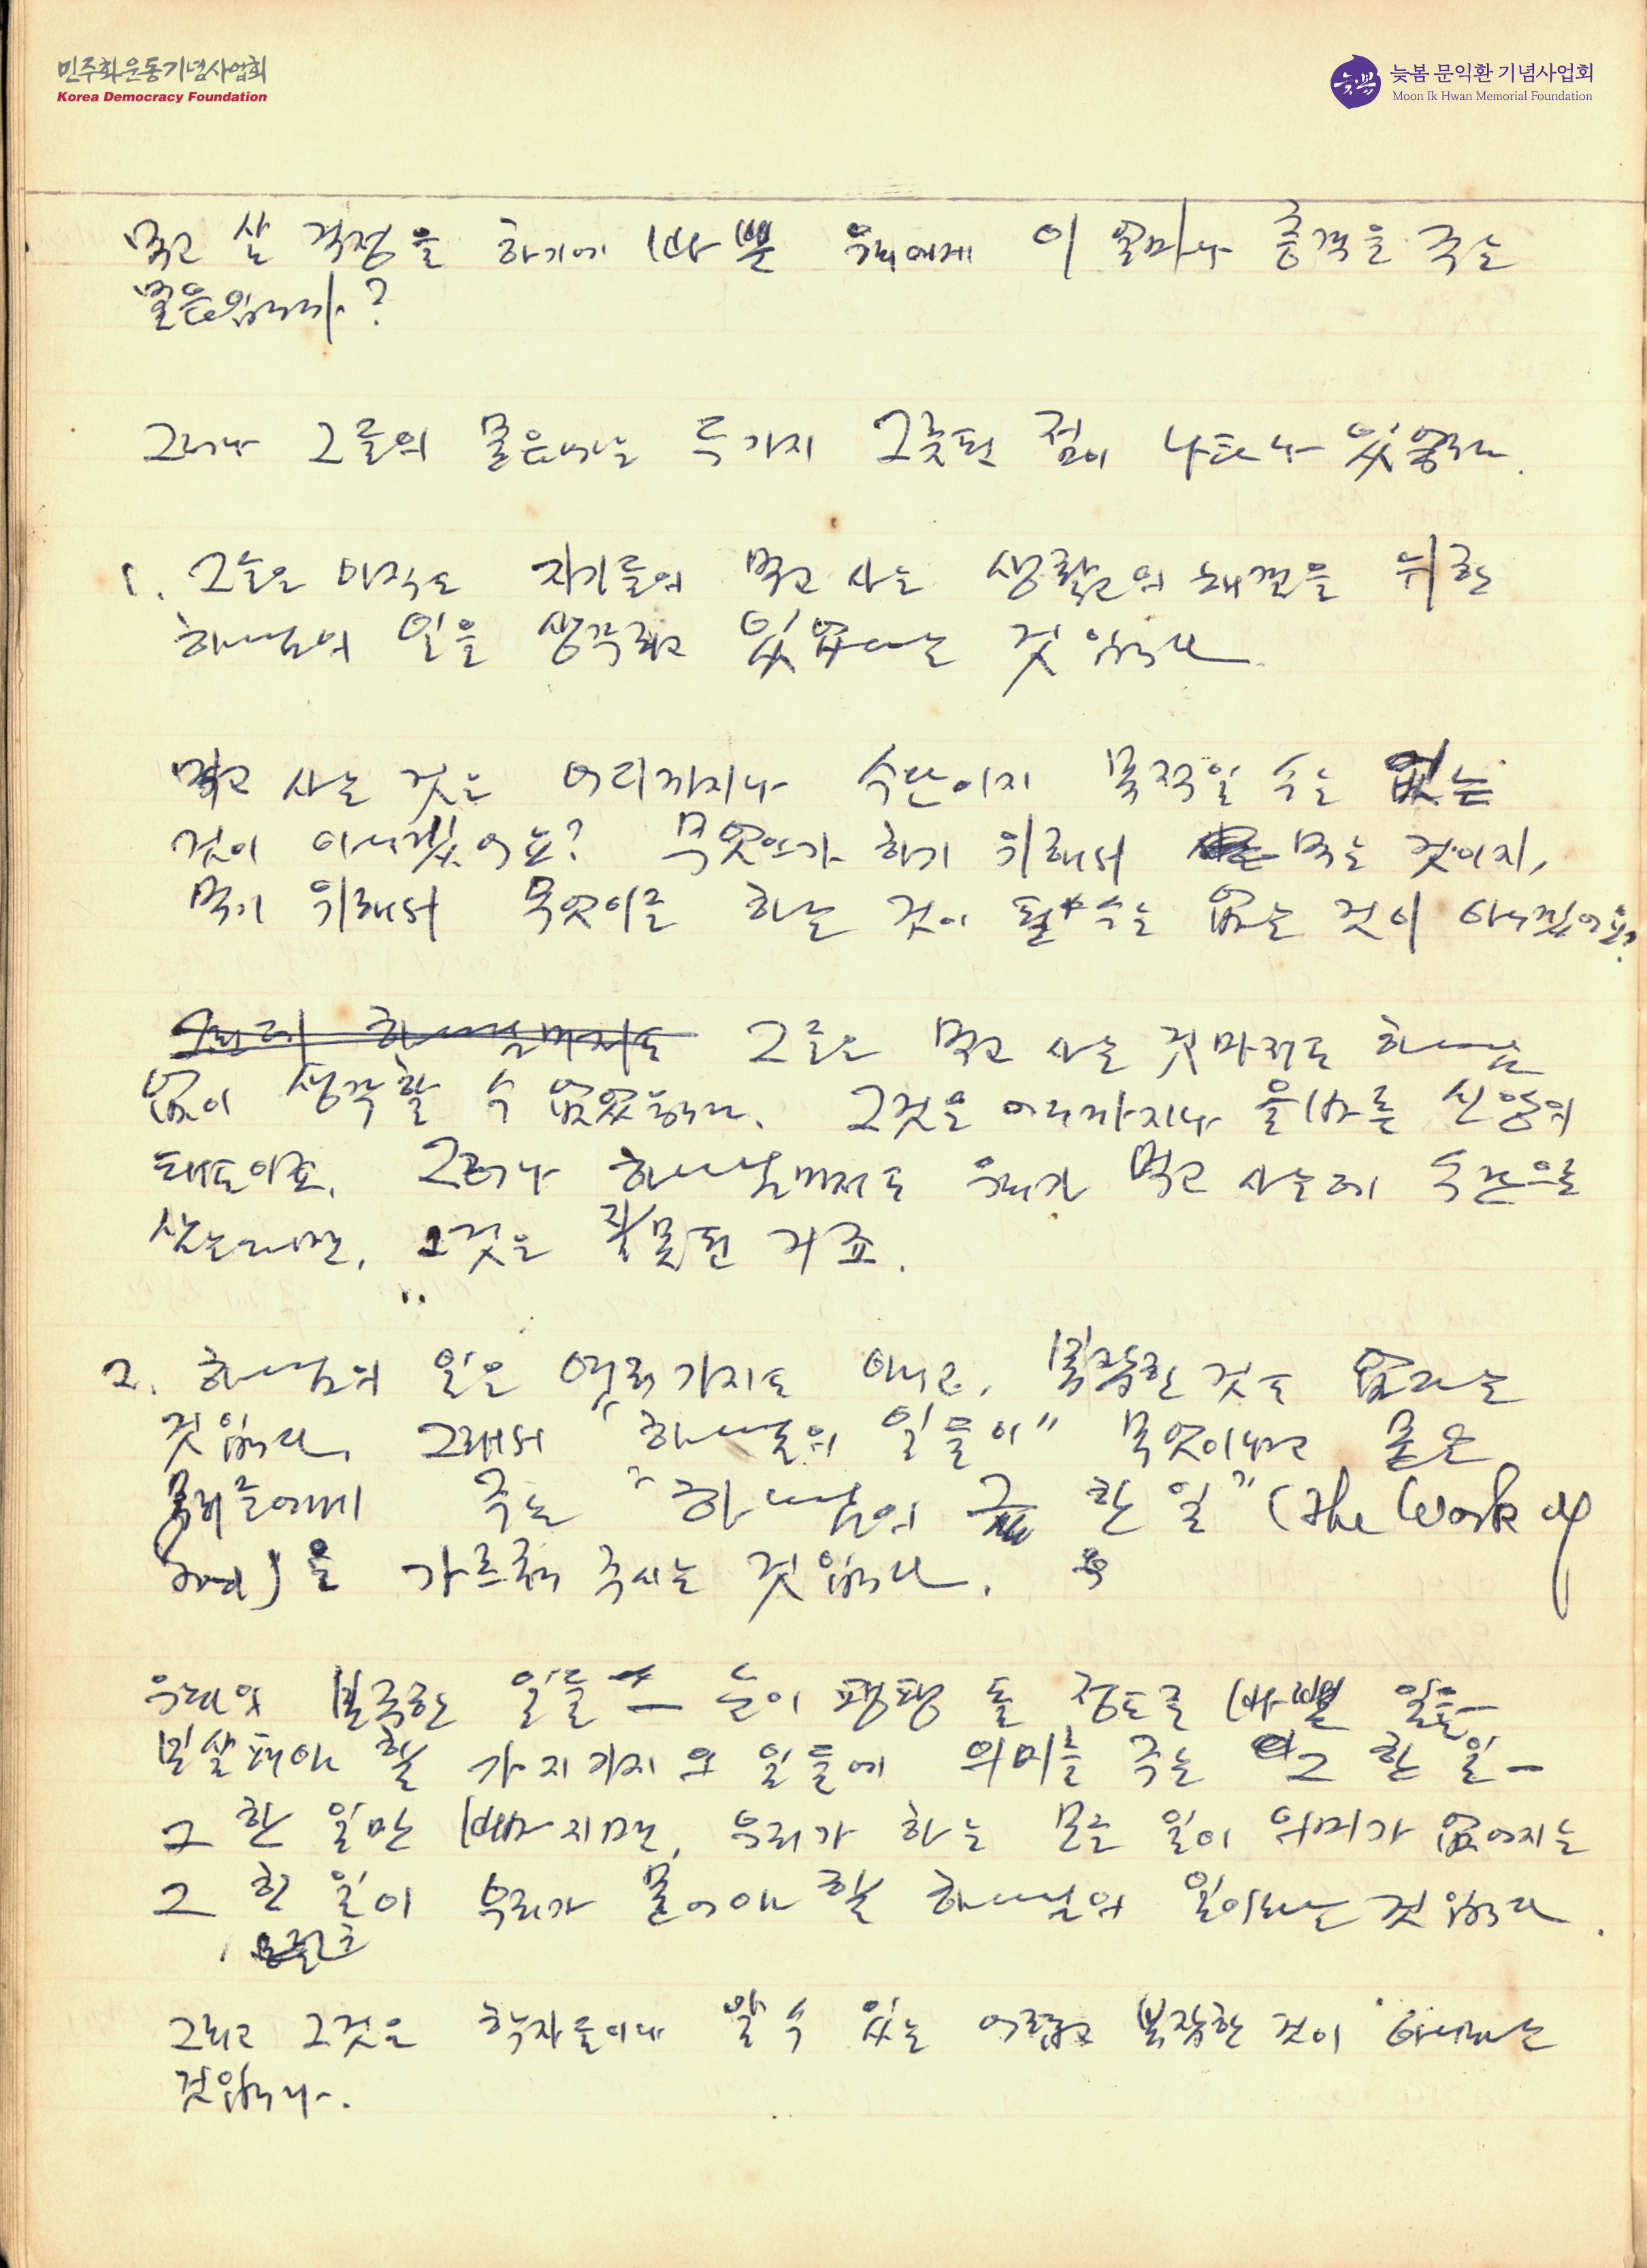 민주화운동기념사업회
Korea Democracy Foundation
늦봄 문익환 기념사업회
Moon Ik Hwan Memorial Foundation
먹고 살 걱정을 하기에 바쁜 우리에게 이 얼마나 충격을 주는
물음입니까?
그러나 그들의 물음에는 두가지 그릇된 점이 나타나 있습니다.
1. 그들은 아직도 자기들의 먹고 사는 생활고의 해결을 위한
하나님의 일을 생각하고 있었다는 것입니다.
먹고 사는 것은 어디까지나 수단이지 목적일 수는 없는
것이 아니겠어요? 무엇인가 하기 위해서 먹는 것이지,
먹기 위해서 무엇이를 하는 것이 될 수는 없는 것이 아니겠어요?
그런데 하나님까지도 그들은 먹고 사는 것마저도 하나님
없이 생각할 수 없었습니다. 그것은 어디까지나 올바른 신앙의
태도이죠. 그러나 하나님까지도 우리가 먹고 사는데 수단으로
삼는다면, 그것은 잘못된 거죠.
2. 하나님의 일은 여러가지도 아니고, 복잡한 것도 없다는
것입니다. 그래서 "하나님의 일들이" 무엇이냐고 묻는
무리들에게 주는 "하나님의 그 한 일" (the work of
God)을 가르쳐 주시는 것입니다.
우리의 분주한 일들 — 눈이 팽팽 돌 정도로 바쁜 일들—
보살펴야 할 가지가지의 일들에 의미를 주는 그 한 일—
그 한 일만 빠지면, 우리가 하는 모든 일이 의미가 없어지는
그 한 일이 우리가 물어야 할 하나님의 일이라는 것입니다.
그리고 그것은 학자들이나 알 수 있는 어렵고 복잡한 것이 아니라는
것입니다.